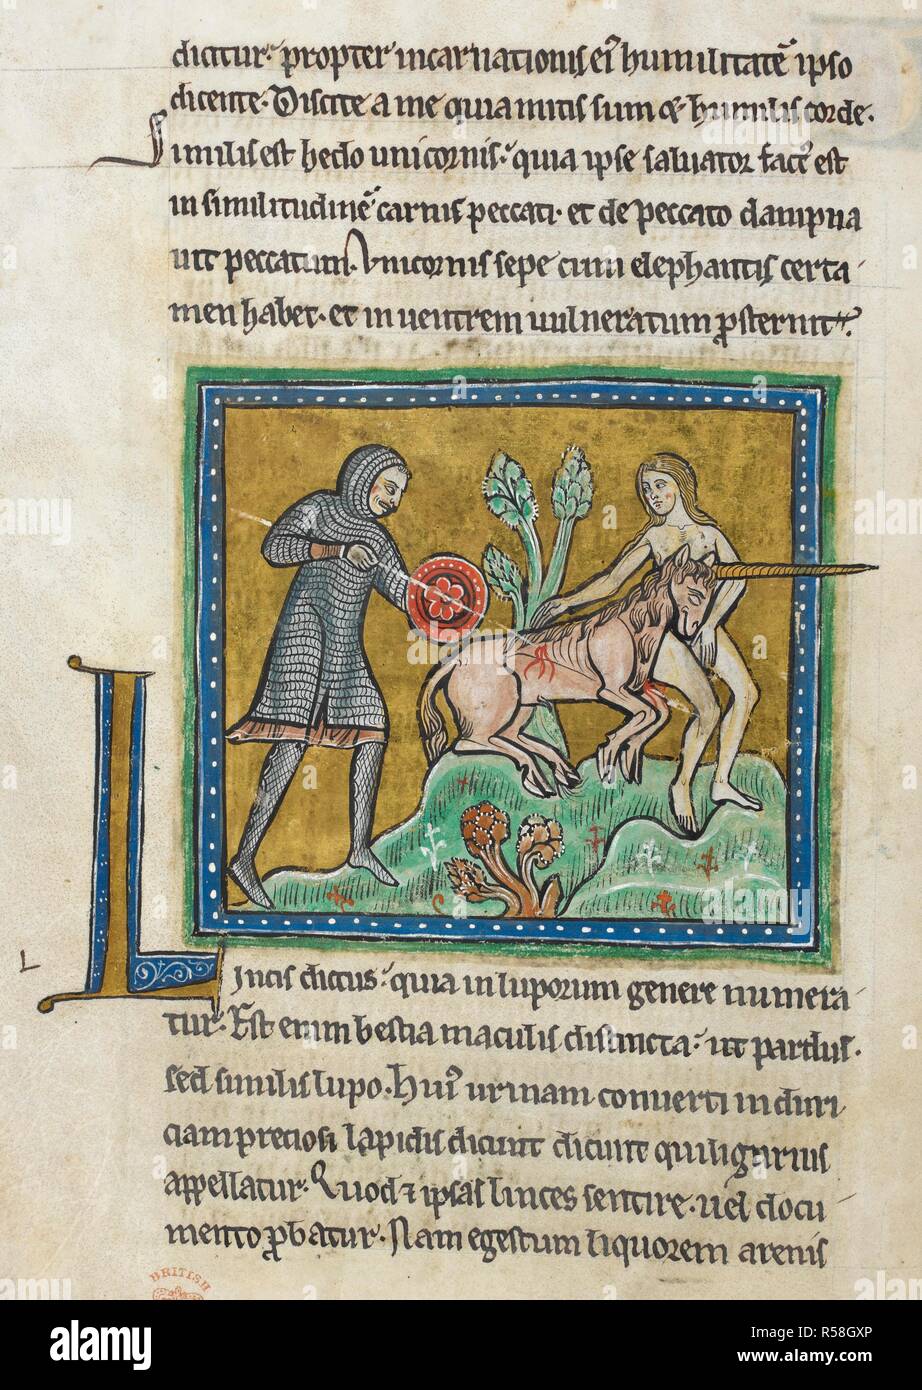 dicitur. propter incarnationis eiꝰ humilitatē ipso
dicente. Discite a me quia mitis sum & humilis corde.
Similis est hedo unicornis. quia ipse saluator factꝰ est
in similitudinē carnis peccati. et de peccato dampna
uit peccatum. Vnicornis sepe cum elephantis certa
men habet. et in uentrem uulneratum ꝓsternit.
L
Lincis dictus. quia in luporum genere numera
tur. Est enim bestia maculis distincta. ut pardus.
sed similis lupo. Huiꝰ urinam conuerti in duri
ciam preciosi lapidis dicunt dicunt qui ligurius
appellatur. Quod & ipsas linces sentire. uel docu
mento ꝓbatur. Nam egestum liquorem arenis
BRITISH
alamy
Image ID: R58GXP
www.alamy.com